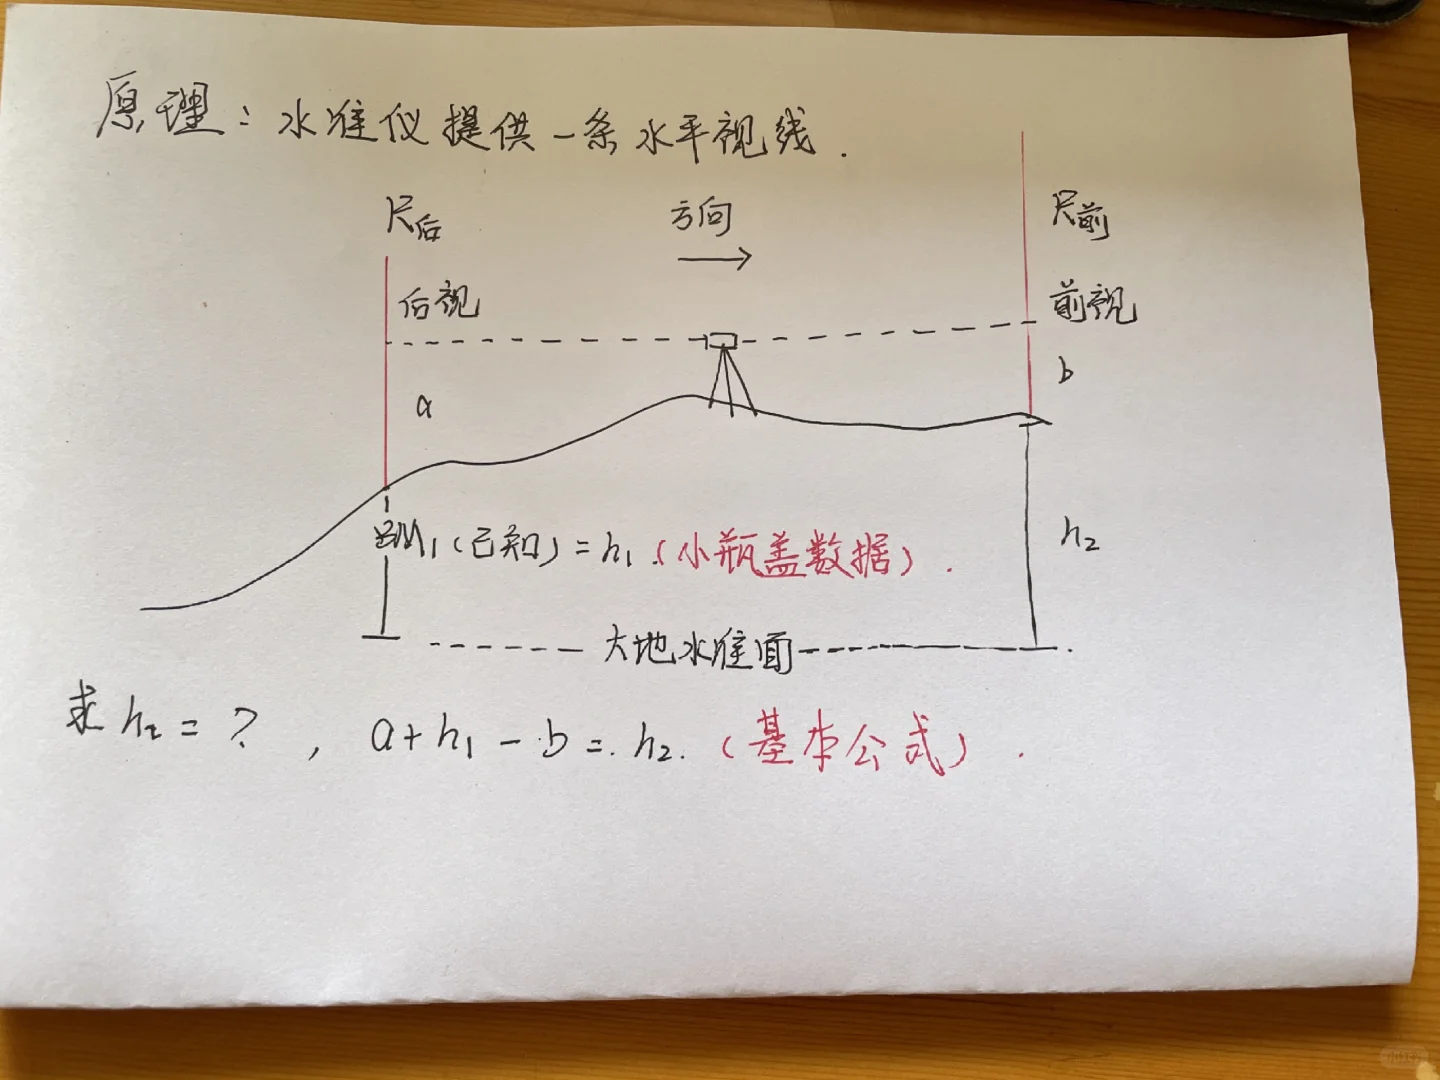 原理：水准仪提供一条水平视线.
尺后
方向
尺前
后视
前视
a
b
BM1(已知)=h1 (小瓶盖数据).
h2
大地水准面
求h2=?, a+h1-b=h2. (基本公式).